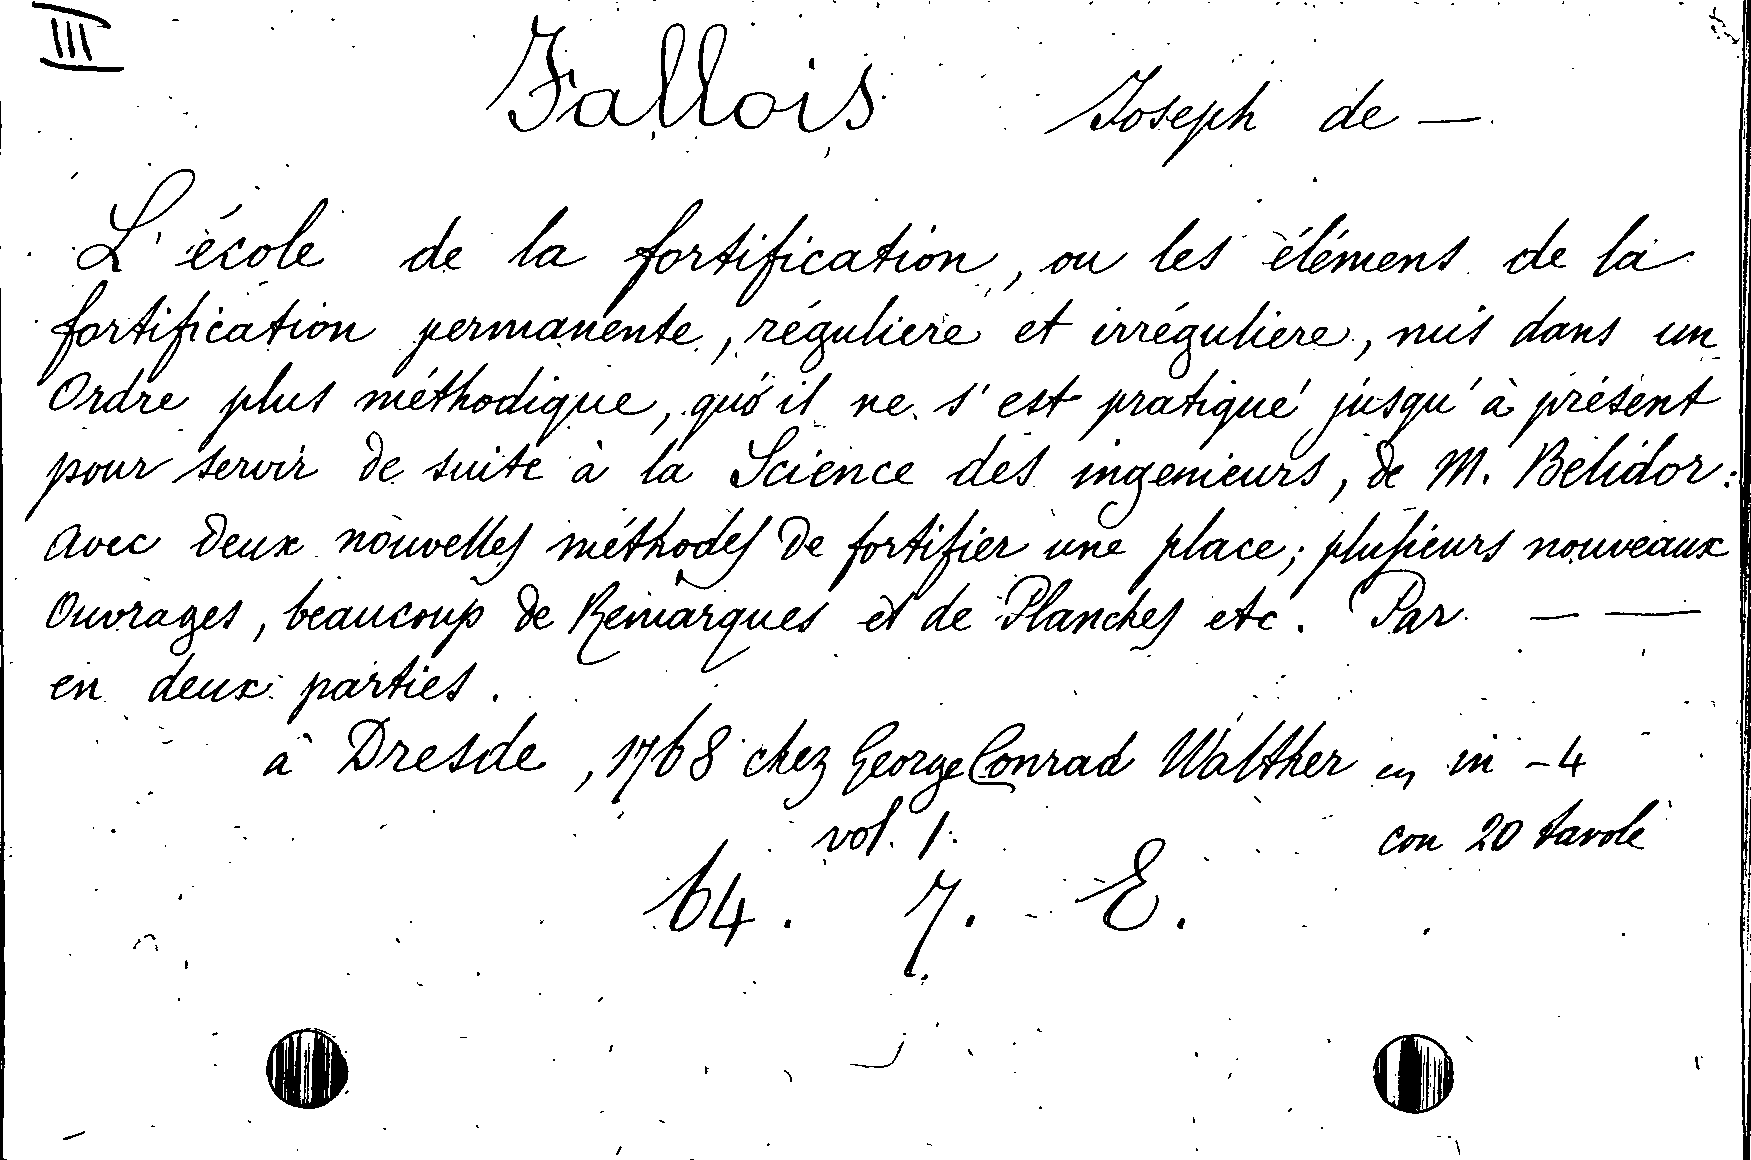 III
Fallois Joseph de —
L'école de la fortification, ou les élémens de la
fortification permanente, réguliere et irréguliere, mis dans un
Ordre plus méthodique, qu'il ne s'est pratiqué jusqu'à présent
pour servir de suite à la Science des ingenieurs, de M. Belidor:
avec deux nouvelles méthodes de fortifier une place; plusieurs nouveaux
Ouvrages, beaucoup de Remarques et de Planches etc. Par — —
en deux parties.
à Dresde, 1768 chez George Conrad Walther in -4
vol. 1. con 20 tavole
64. 7. E.